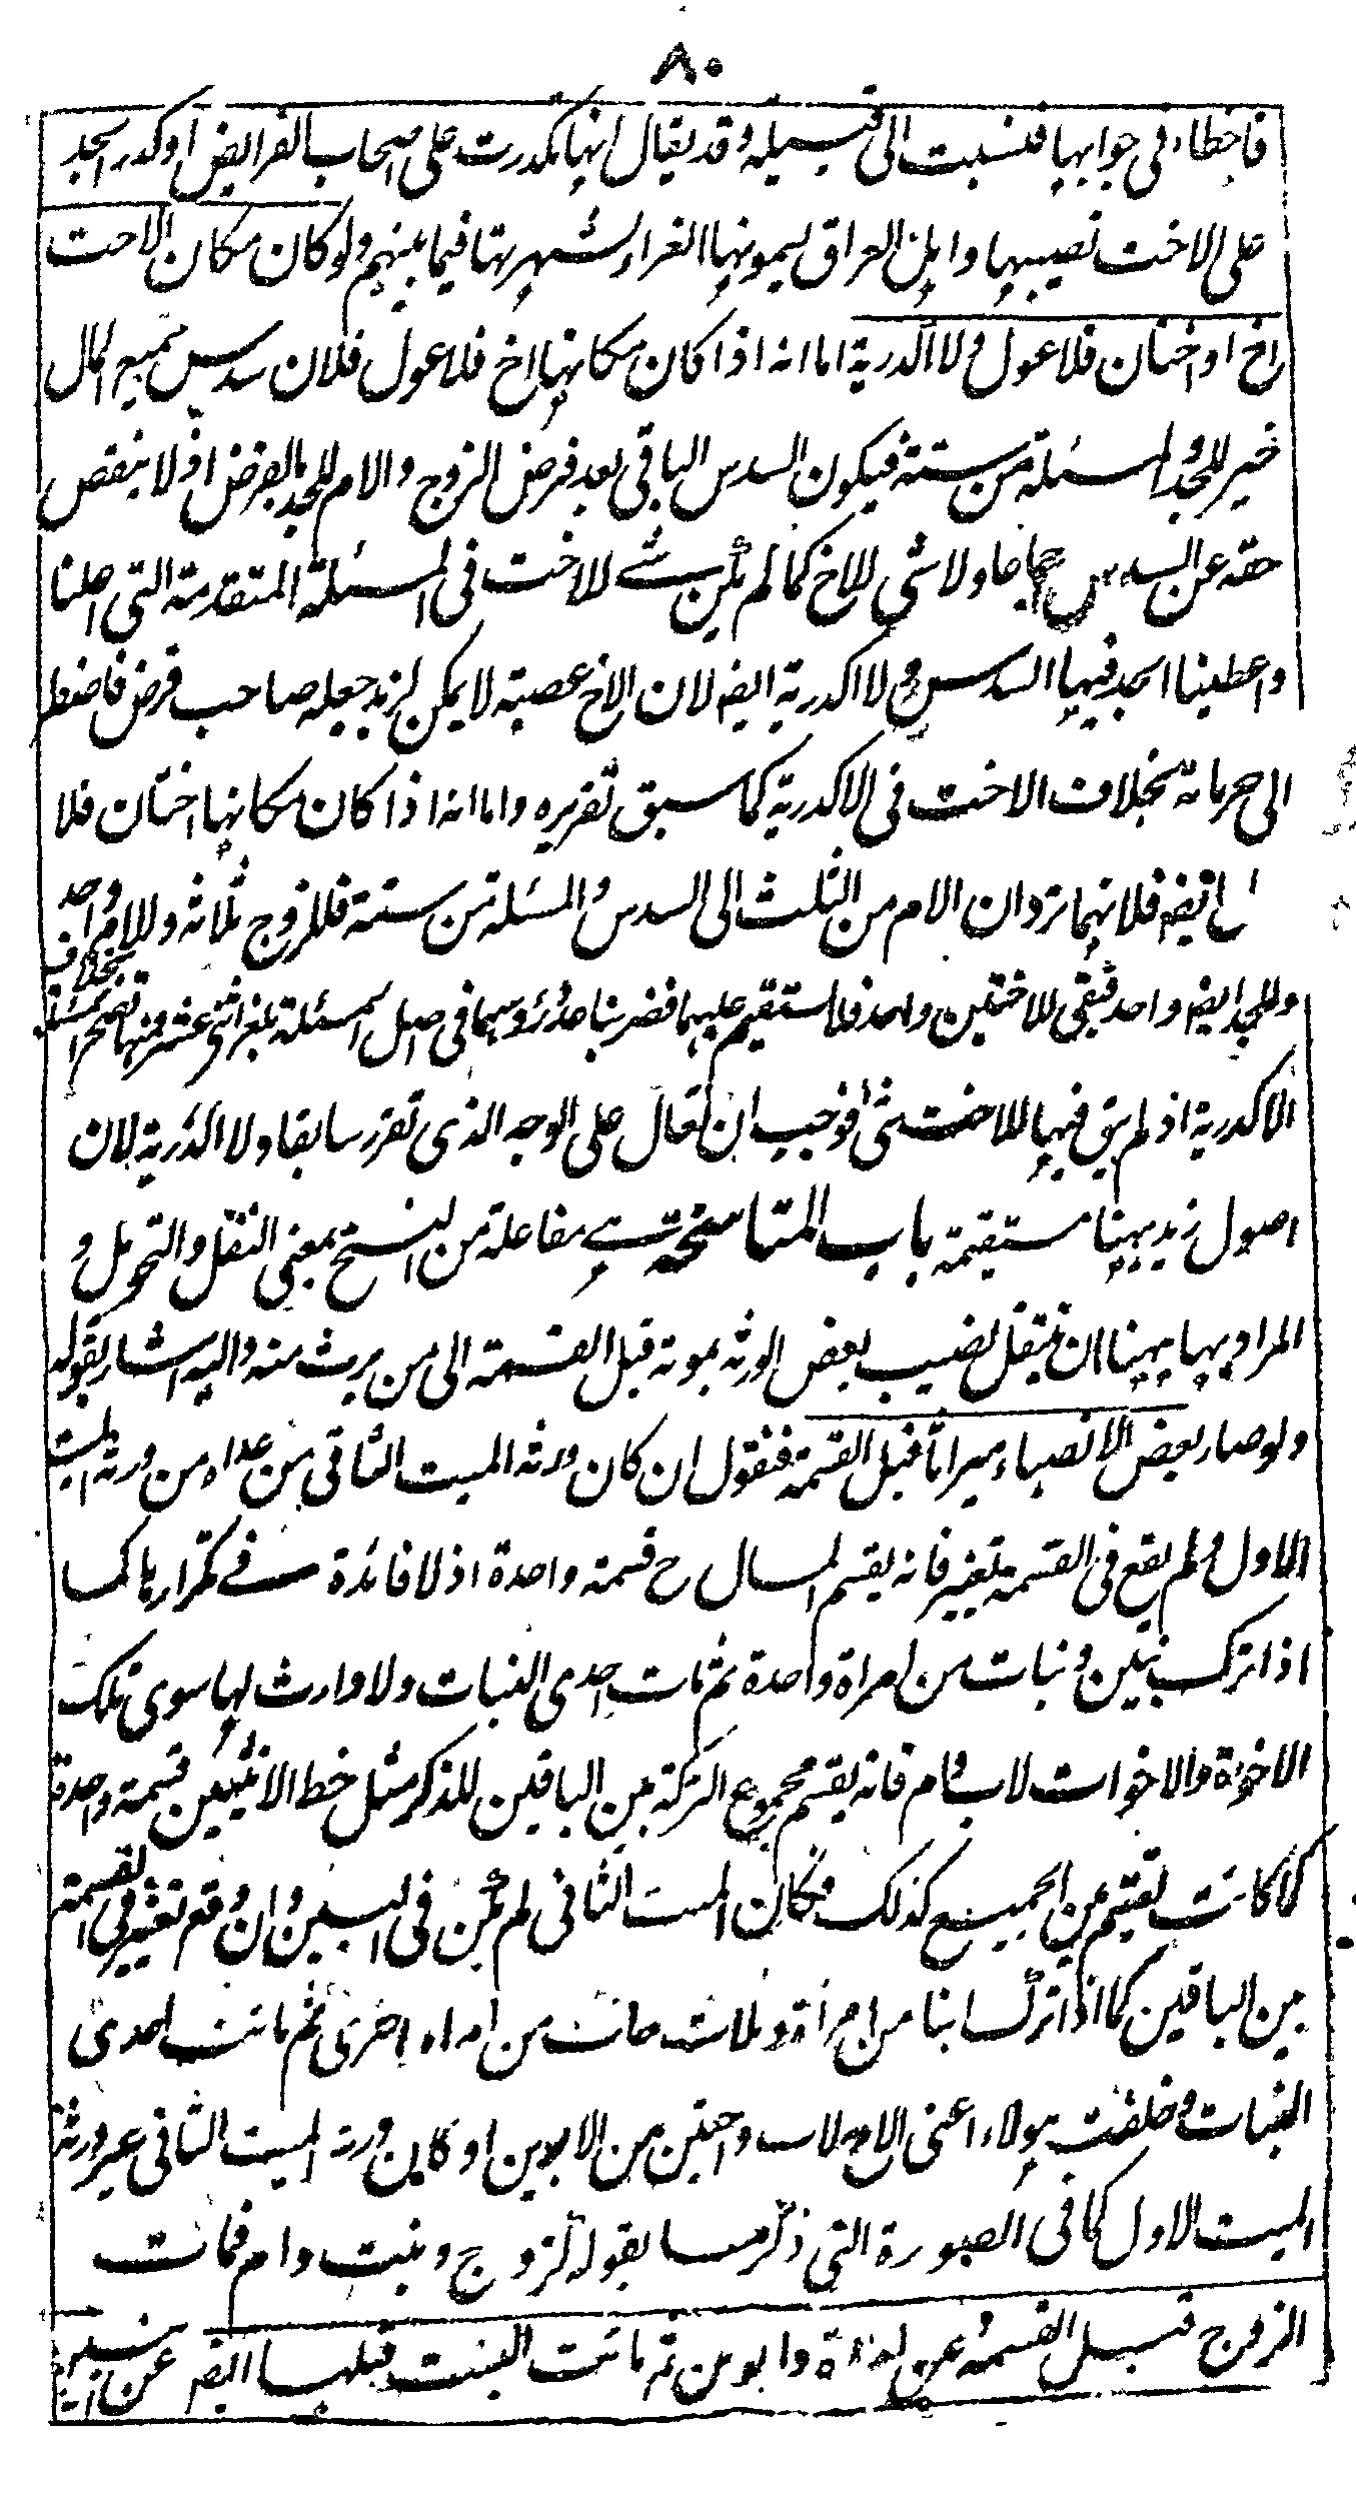 ٨٠
فاخطاء فى جوابها فنسبت الى قبيلة وقد يقال انها تكدرت على اصحاب الفرايض او كدر الجد
على الاخت نصيبها واهل العراق يسمونها الغراء لشهرتها فيما بينهم ولو كان مكان الاخت
اخ او اختان فلا عول ولا اكدرية اما انه اذا كان مكانها اخ فلا عول فلان سدس جميع المال
خير للجد والمسئلة من ستة فيكون السدس الباقى بعد فرض الزوج والام للجد بالفرض اذ لا ينقص
حقه عن السدس اجماعا ولا شى للاخ كما لم يكن شے للاخت فى المسئلة المتقدمة التى اصلنا
واعطينا الجد فيها السدس ولا اكدرية ايضه لان الاخ عصبة لا يمكن لزيد جعله صاحب فرض فاضطر
الى حرمانه بخلاف الاخت فى الاكدرية كما سبق تقريره واما انه اذا كان مكانها اختان فلا
ايضه فلانهما تردان الام من الثلث الى السدس والمسئلة من ستة فللزوج ثلاثة وللام واحد
وللجد ايضه واحد فبقى للاختين واحد فلا يستقيم عليهما فضربنا عدد رؤسهما فى اصل المسئلة بلغ اثنى عشر فمنها تصح المسئلة بخلاف
الاكدرية اذ لم يبق فيها للاخت شى فوجب ان تعال على الوجه الذى تقرر سابقا ولا اكدرية لان
اصول زيد ههنا مستقيمة باب المناسخة هے مفاعلة من النسخ بمعنى النقل والتحويل و
المراد بها ههنا ان ينتقل نصيب بعض الورثه بموته قبل القسمة الى من يرث منه واليه اشار بقوله
ولو صار بعض الانصباء ميراثا قبل القسمة فنقول ان كان ورثة الميت الثانى من عداه من ورثة الميت
الاول ولم يقع فى القسمة تغيير فانه يقسم المال ح قسمة واحدة اذ لا فائدة فے تكرارها كما
اذا ترك بنين وبنات من امراة واحدة ثم مات احدى البنات ولا وارث لها سوى تلك
الاخوة والاخوات لاب وام فانه يقسم مجموع التركة بين الباقين للذكر مثل حظ الانثيين قسمة واحدة
كما كانت تقسم بين الجميع كذلك فكان الميت الثانى لم يكن فى البين وان وقع تغيير فى القسمة
بين الباقين كما اذا ترك ابنا من امراة وثلاث بنات من امراة اخرى ثم ماتت احدى
البنات وخلفت هؤلاء اعنى الاخ لاب واختين من الابوين او كان ورثة الميت الثانى غير ورثة
الميت الاول كما فى الصورة التى ذكرها بقوله كزوج وبنت وام فمات
الزوج قبل القسمة عن امراة وابوين ثم ماتت البنت قبلها ايضه عن ابنين